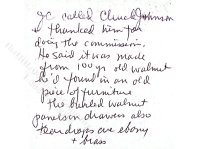 JC called Chuck Johnson
& thanked him for
doing the commission.
He said it was made
from 100 yr old walnut
he'd found in an old
piece of furniture
the burled walnut
panels on drawers also
teardrops are ebony
+ brass